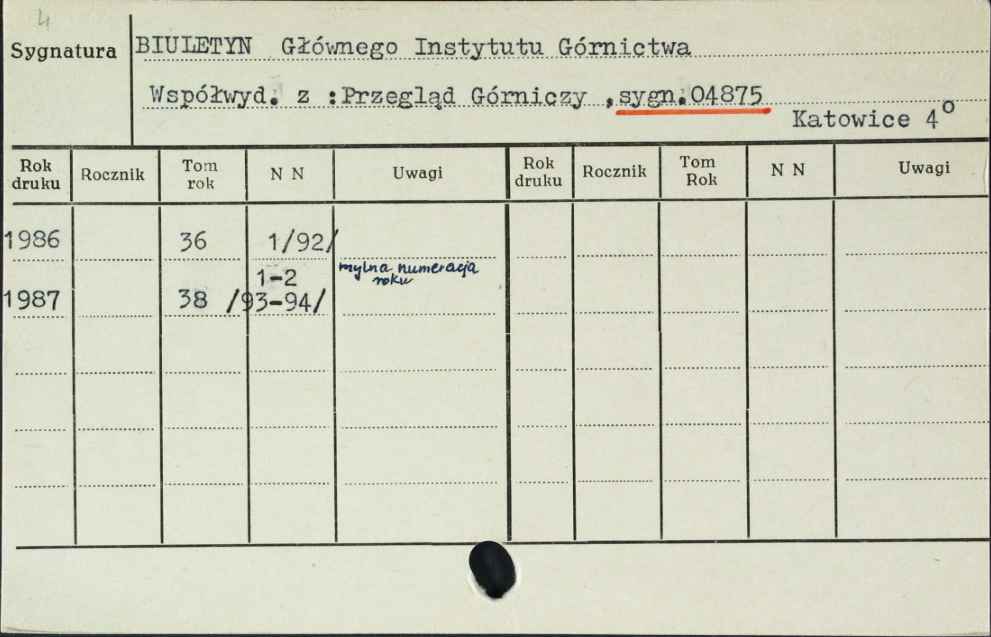 4
Sygnatura
BIULETYN Głównego Instytutu Górnictwa
Współwyd. z :Przegląd Górniczy ,sygn.04875
Katowice 4º
Rok druku Rocznik Tom rok N N Uwagi Rok druku Rocznik Tom Rok N N Uwagi
1986 36 1/92/
1-2 mylna numeracja
roku
1987 38 /93-94/